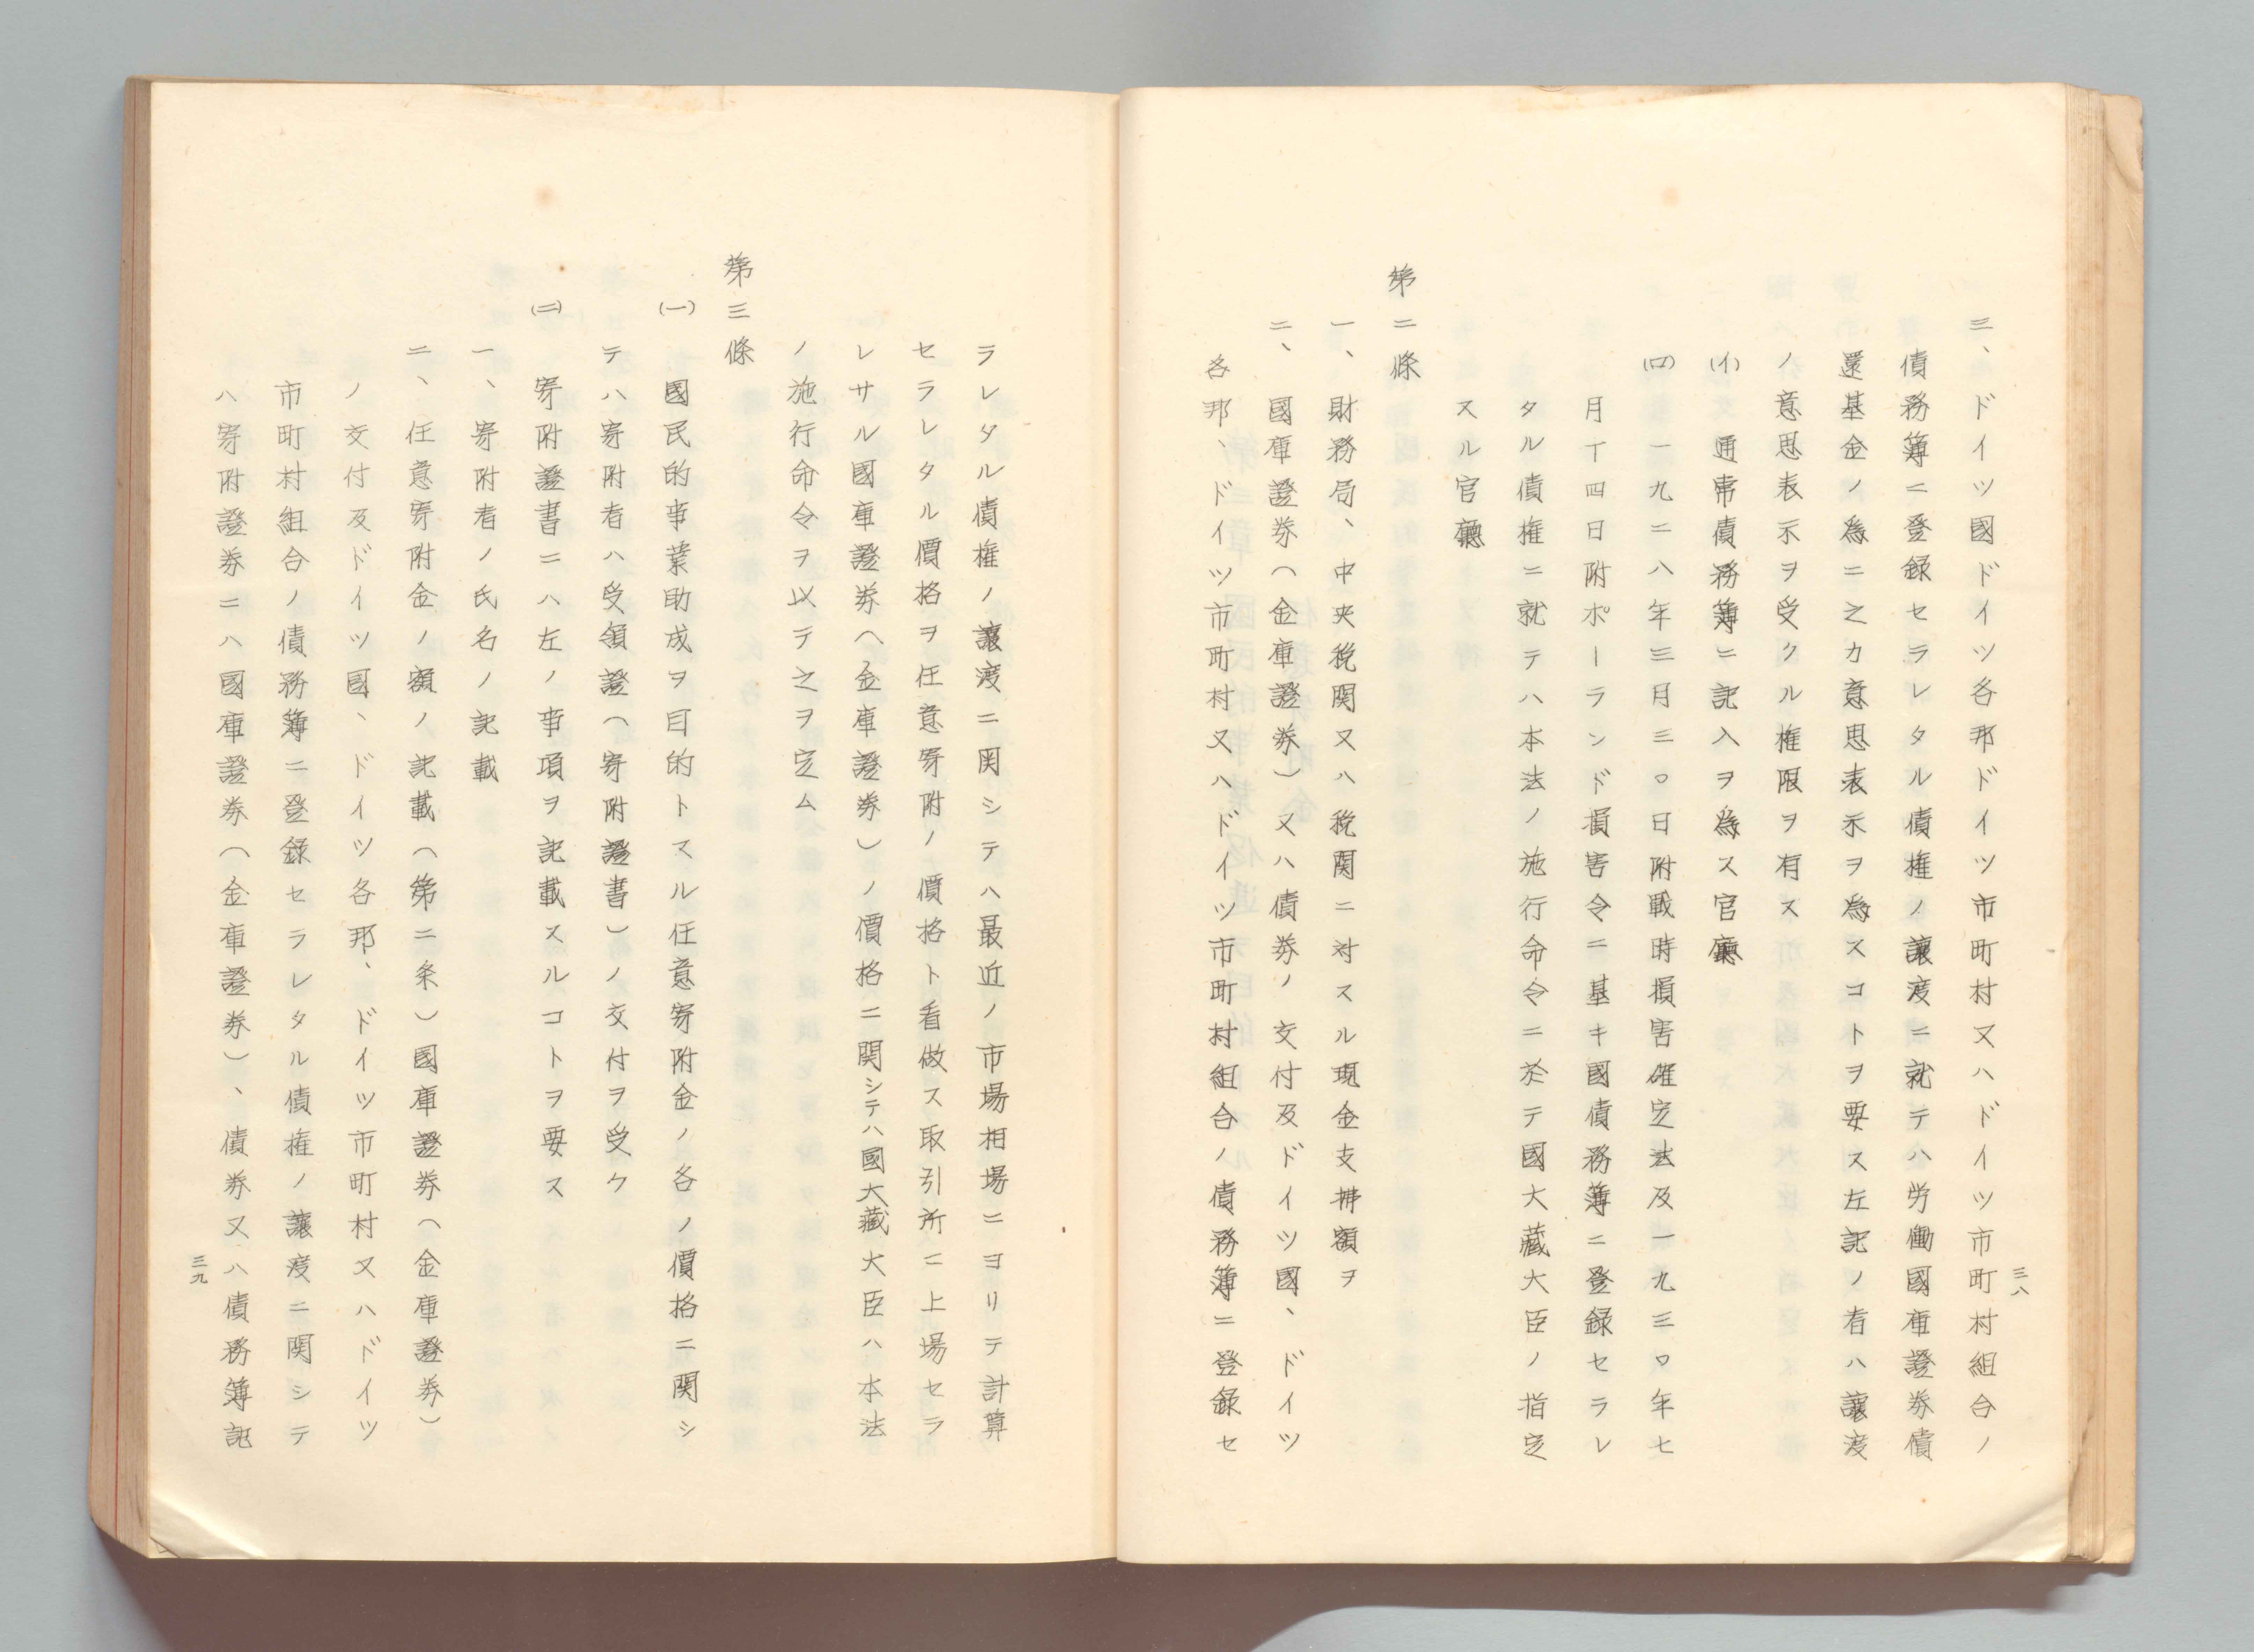 三八
三、ドイツ國ドイツ各邦ドイツ市町村又ハドイツ市町村組合ノ
債務簿ニ登録セラレタル債権ノ讓渡ニ就テハ労働國庫證券債
還基金ノ為ニ之カ意思表示ヲ為スコトヲ要ス左記ノ者ハ讓渡
ノ意思表示ヲ受クル権限ヲ有ス
(イ) 通常債務簿ニ記入ヲ為ス官廳
(ロ) 一九二八年三月三〇日附戰時損害確定法及一九三〇年七
月丁四日附ポーランド損害令ニ基キ國債務簿ニ登録セラレ
タル債権ニ就テハ本法ノ施行命令ニ於テ國大藏大臣ノ指定
スル官廳
第二條
一、財務局、中央税関又ハ税関ニ対スル現金支拂額ヲ
二、國庫證券(金庫證券)又ハ債券ノ交付及ドイツ國、ドイツ
各邦、ドイツ市町村又ハドイツ市町村組合ノ債務簿ニ登録セ
ラレタル債権ノ讓渡ニ関シテハ最近ノ市場相場ニヨリテ計算
セラレタル價格ヲ任意寄附ノ價格ト看做ス取引所ニ上場セラ
レサル國庫證券(金庫證券)ノ價格ニ関シテハ國大藏大臣ハ本法
ノ施行命令ヲ以テ之ヲ定ム
第三條
(一) 國民的事業助成ヲ目的トスル任意寄附金ノ各ノ價格ニ関シ
テハ寄附者ハ受領證(寄附證書)ノ交付ヲ受ク
(二) 寄附證書ニハ左ノ事項ヲ記載スルコトヲ要ス
一、寄附者ノ氏名ノ記載
二、任意寄附金ノ額ノ記載(第二条)國庫證券(金庫證券)
ノ交付及ドイツ國、ドイツ各邦、ドイツ市町村又ハドイツ
市町村組合ノ債務簿ニ登録セラレタル債権ノ讓渡ニ関シテ
ハ寄附證券ニハ國庫證券(金庫證券)、債券又ハ債務簿記
三九